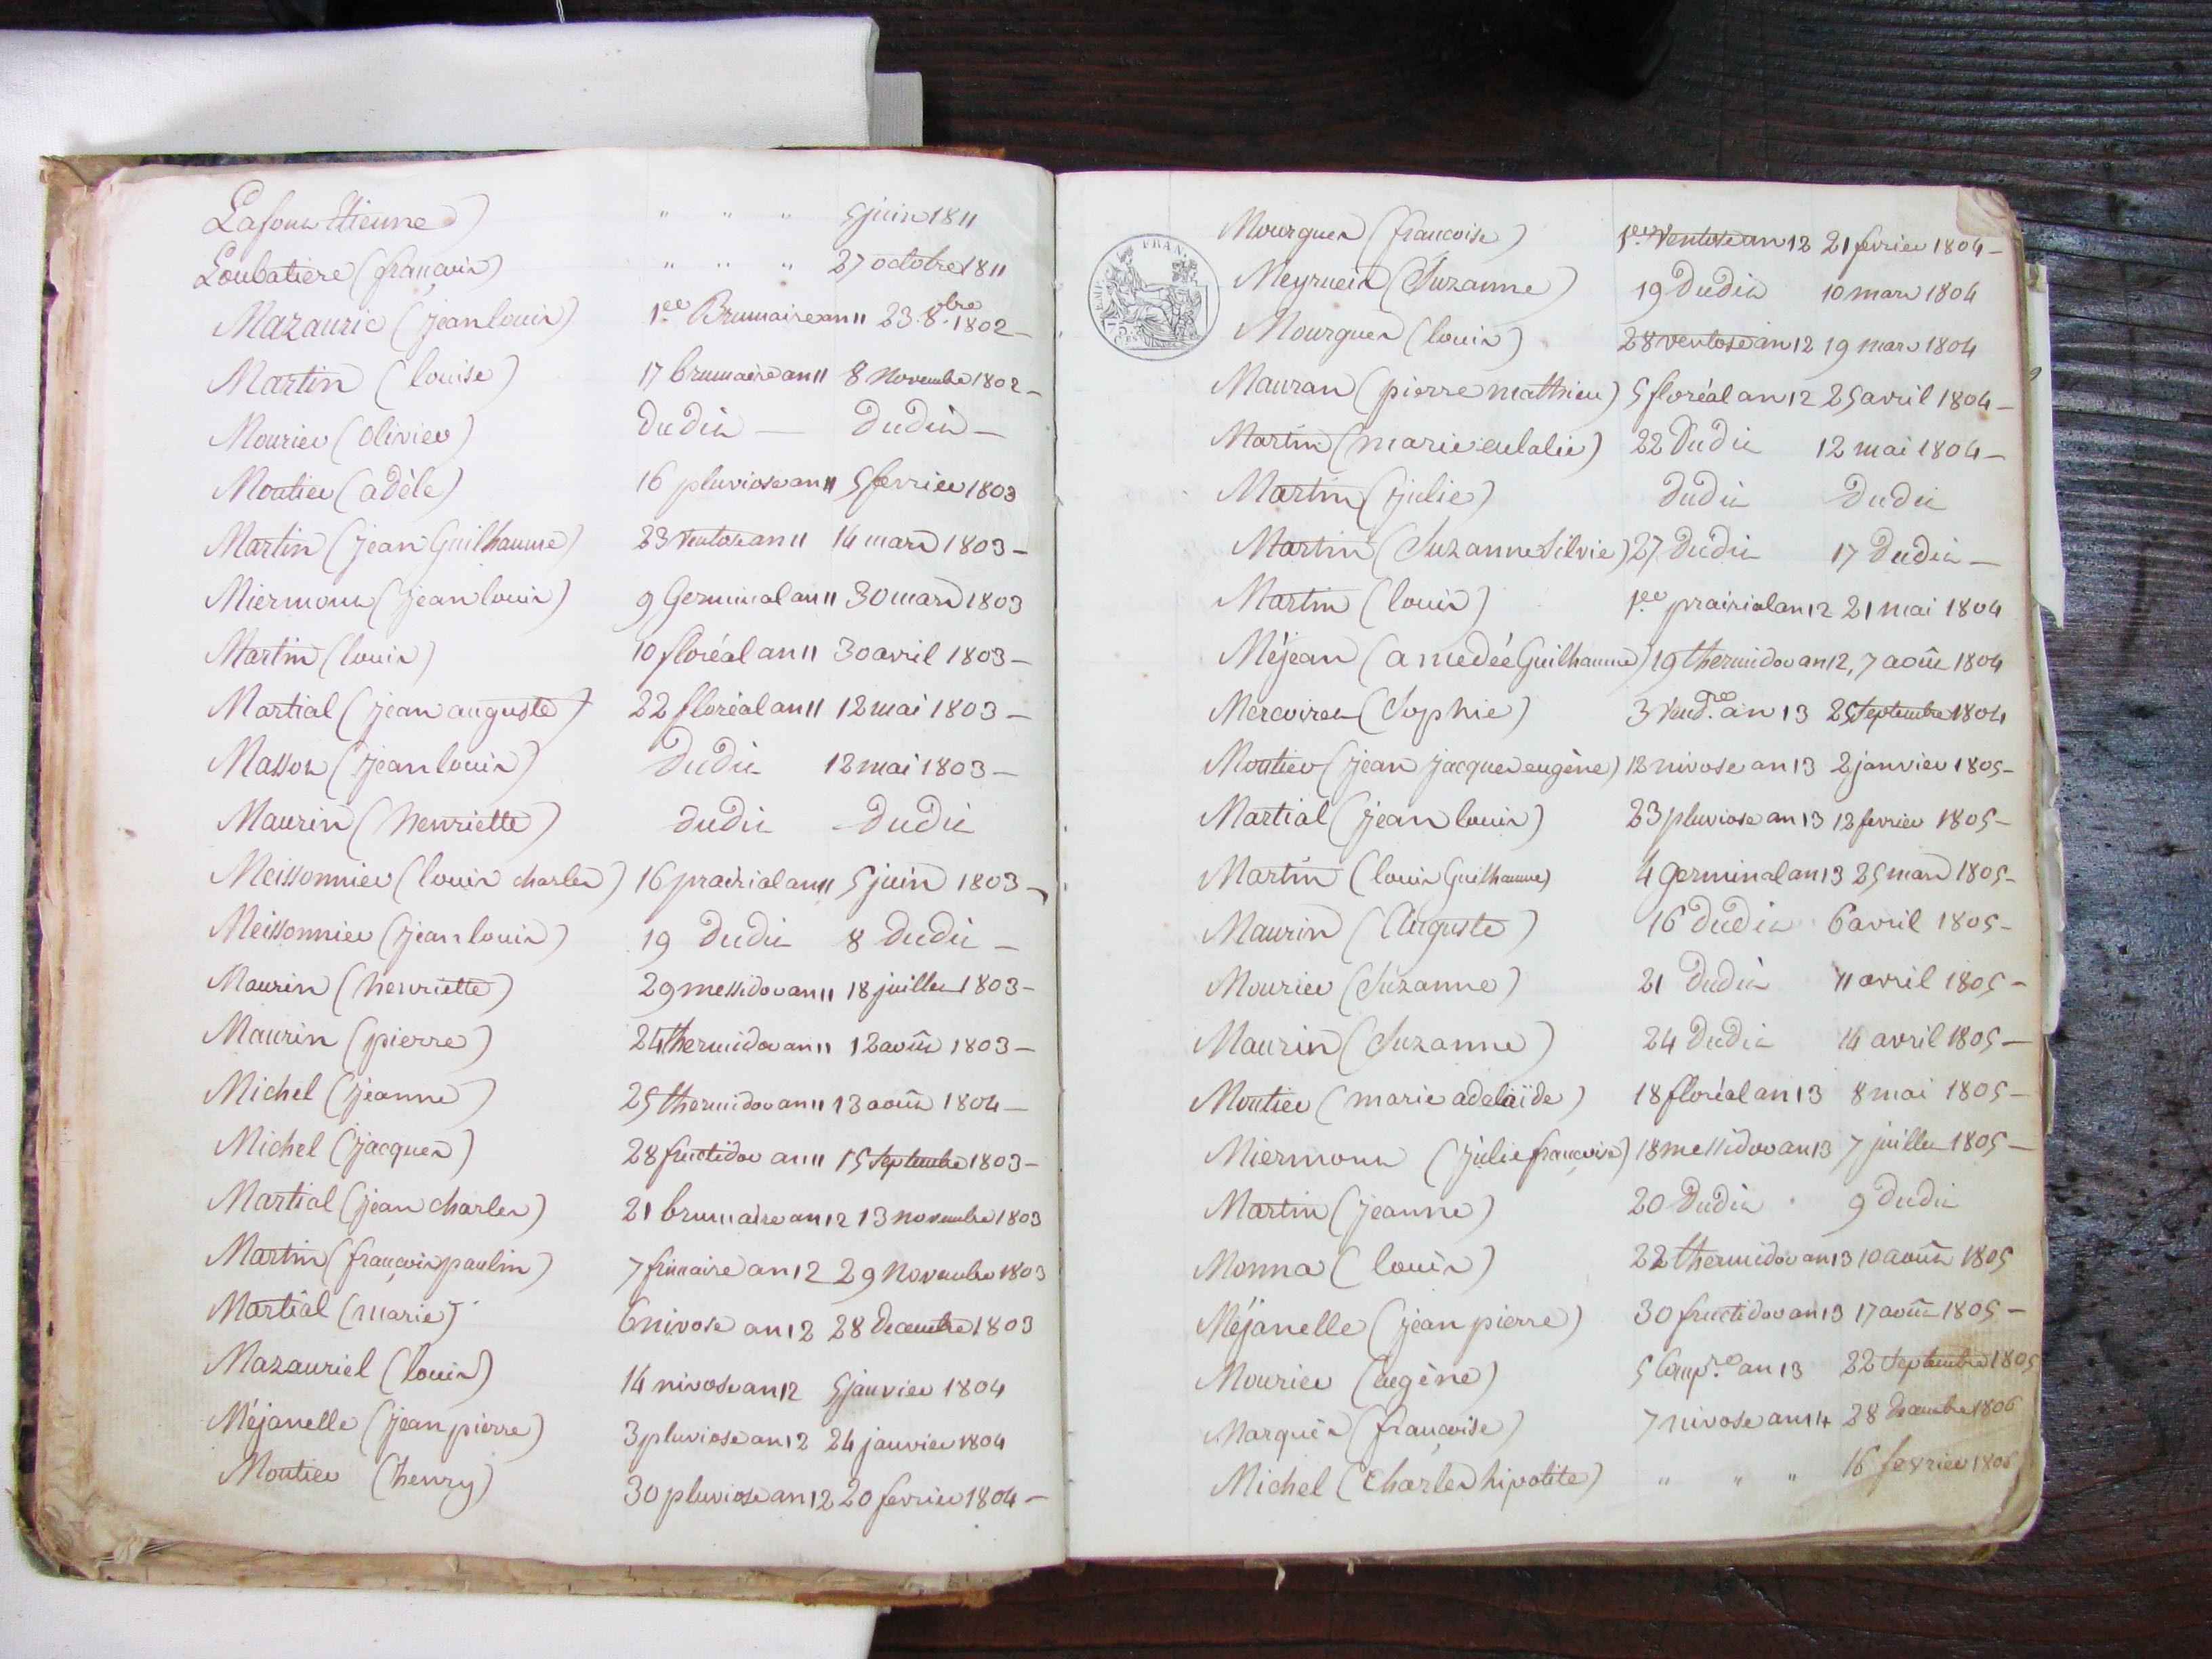 Lafont Etienne)
" " " 5 juin 1811
Loubatiere (françois)
" " " 27 octobre 1811
Mazauric (jean louis) 1.er Brumaire an 11 23. 8.bre 1802 –
Martin (louise) 17 brumaire an 11 8 Novembre 1802 –
Mourier (olivier) dudit — dudit –
Moutier (adèle) 16 pluviose an 11 5 fevrier 1803
Martin (jean Guilhaume) 23 Ventose an 11 14 mars 1803 –
Miermont (jean louis) 9 Germinal an 11 30 mars 1803
Martin (louis) 10 floréal an 11 30 avril 1803 –
Martial (jean auguste) 22 floréal an 11 12 mai 1803 –
Masson (jean louis) dudit 12 mai 1803 –
Maurin (henriette) dudit dudit
Meissonnier (louis charles) 16 prairial an 11 5 juin 1803 –
Meissonnier (jean louis) 19 dudit 8 dudit –
Maurin (henriette) 29 messidor an 11 18 juillet 1803 –
Maurin (pierre) 24 thermidor an 11 12 août 1803 –
Michel (jeanne) 25 thermidor an 11 13 août 1804 –
Michel (jacques) 28 fructidor an 11 15 Septembre 1803 –
Martial (jean charles) 21 brumaire an 12 13 novembre 1803
Martin (françois paulin) 7 frimaire an 12 29 Novembre 1803
Martial (marie) 6 nivose an 12 28 decembre 1803
Mazauriel (louis) 14 nivose an 12 5 janvier 1804
Méjanelle (jean pierre) 3 pluviose an 12 24 janvier 1804
Moutier (henry) 30 pluviose an 12 20 fevrier 1804 –
Mourgues (francoise) 1.er Ventose an 12 21 fevrier 1804 –
EMP. FRAN.
75 C.ES
Meyrueis (Suzanne) 19 dudit 10 mars 1804
Mourgues (louis) 28 ventose an 12 19 mars 1804
Mauran (pierre mathieu) 5 floréal an 12 25 avril 1804 –
Martin (marie eulalie) 22 dudit 12 mai 1804 –
Martin (julie) dudit dudit
Martin (Suzanne Silvie) 27 dudit 17 dudit –
Martin (louis) 1.er prairial an 12 21 mai 1804
Méjean (amedée Guilhaume) 19 thermidor an 12, 7 août 1804
Mercoiret (Sophie) 3 Vend.re an 13 25 Septembre 1804
Moutier (jean jacques eugène) 12 nivose an 13 2 janvier 1805 –
Martial (jean louis) 23 pluviose an 13 12 fevrier 1805 –
Martin (louis Guilhaume) 4 Germinal an 13 25 mars 1805 –
Maurin (Auguste) 16 dudit 6 avril 1805 –
Mourier (Suzanne) 21 dudit 11 avril 1805 –
Maurin (Suzanne) 24 dudit 14 avril 1805 –
Moutier (marie adelaïde) 18 floréal an 13 8 mai 1805 –
Miermont (julie françoise) 18 messidor an 13 7 juillet 1805 –
Martin (jeanne) 20 dudit 9 dudit
Monna (louis) 22 thermidor an 13 10 août 1805
Méjanelle (jean pierre) 30 fructidor an 13 17 août 1805 –
Mourier (eugène) 5 Comp.re an 13 22 Septembre 1805
Marquès (françoise) 7 nivose an 14 28 decembre 1806
Michel (charles hipolite) " " " 16 fevrier 1806